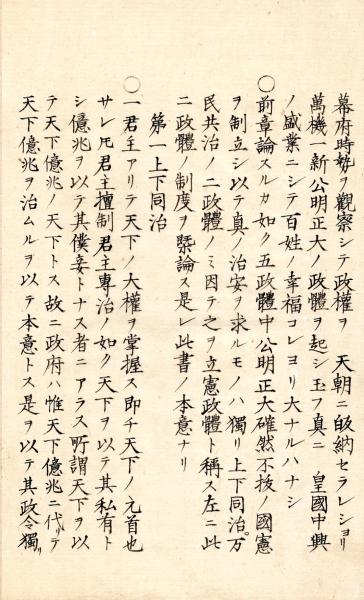 幕府時勢ヲ觀察シテ政權ヲ　天朝ニ皈納セラレショリ
萬機一新公明正大ノ政體ヲ起シ玉フ真ニ　皇國中興
ノ盛業ニシテ百姓ノ幸福コレヨリ大ナルハナシ
〇前章論スルカ如ク五政體中公明正大確然不抜ノ國憲
ヲ制立シ以テ真ノ治安ヲ求ルモノハ獨リ上下同治。万
民共治ノ二政體ノミ因テ之ヲ立憲政體ト稱ス左ニ此
二政體ノ制度ヲ槩論ス是レ此書ノ本意ナリ
第一上下同治
〇一君主アリテ天下ノ大權ヲ掌握ス即チ天下ノ元首也
サレ𪜈君主擅制君主專治ノ如ク天下ヲ以テ其私有ト
シ億兆ヲ以テ其僕妾トナス者ニアラス所謂天下ヲ以
テ天下億兆ノ天下トス故ニ政府ハ惟天下億兆ニ代リテ
天下億兆ヲ治ムルヲ以テ本意トス是ヲ以テ其政令獨リ